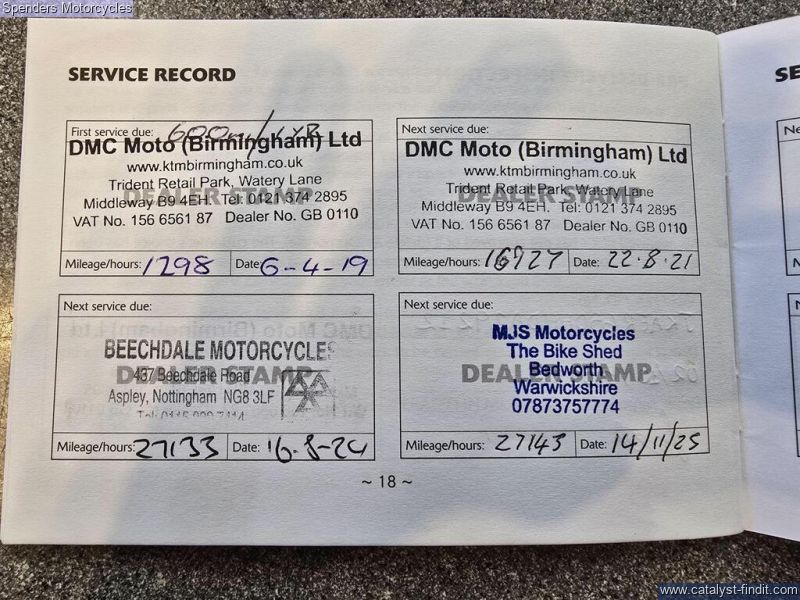 Spenders Motorcycles
SERVICE RECORD
First service due: 600m/1YR
DMC Moto (Birmingham) Ltd
www.ktmbirmingham.co.uk
Trident Retail Park, Watery Lane
DEALER STAMP
Middleway B9 4EH. Tel: 0121 374 2895
VAT No. 156 6561 87 Dealer No. GB 0110
Mileage/hours: 1298 Date: 6-4-19
Next service due:
DMC Moto (Birmingham) Ltd
www.ktmbirmingham.co.uk
Trident Retail Park, Watery Lane
DEALER STAMP
Middleway B9 4EH. Tel: 0121 374 2895
VAT No. 156 6561 87 Dealer No. GB 0110
Mileage/hours: 16927 Date: 22.8.21
Next service due:
BEECHDALE MOTORCYCLES
437 Beechdale Road
DEALER STAMP
Aspley, Nottingham NG8 3LF
Mileage/hours: 27133 Date: 16-8-24
Next service due:
MJS Motorcycles
The Bike Shed
Bedworth
DEALER STAMP
Warwickshire
07873757774
Mileage/hours: 27143 Date: 14/11/25
~ 18 ~
www.catalyst-findit.com